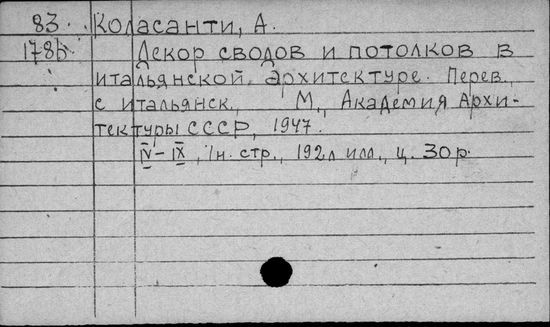 83. Коласанти, А.
1785. Декор сводов и потолков в
итальянской архитектуре. Перев.
с итальянск., М., Академия Архи-
тектуры СССР, 1947.
IV–IX, 1н. стр., 192л илл., ц. 30р.